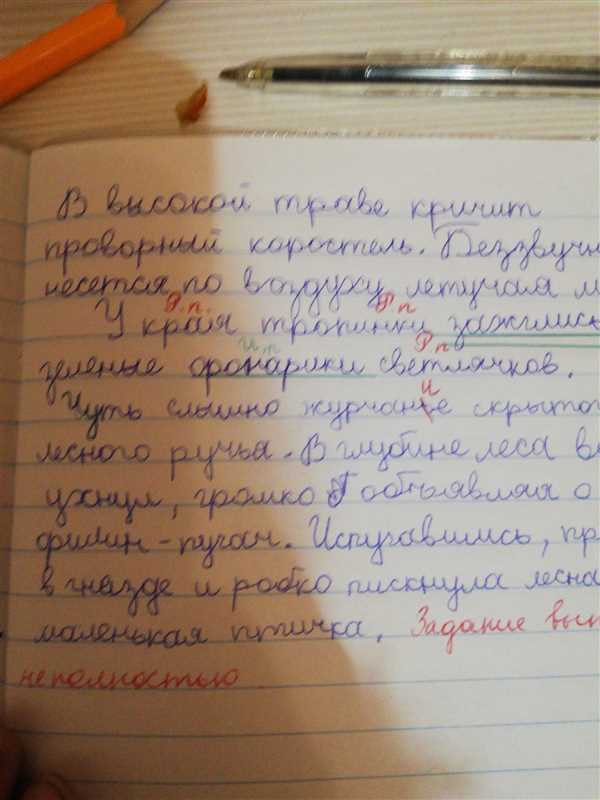 В высокой траве кричит
проворный коростель. Беззвучн
несется по воздуху летучая м
Р.п. Р.п
У края тропинки зажглись
И.п Р.п
зеленые фонарики светлячков.
и
Чуть слышно журчане скрыто
лесного ручья. В глубине леса в
ухнул, громко объявляя о
филин-пугач. Испугавшись, пр
в гнезде и робко пискнула лесна
маленькая птичка. Задание вып
неполностью